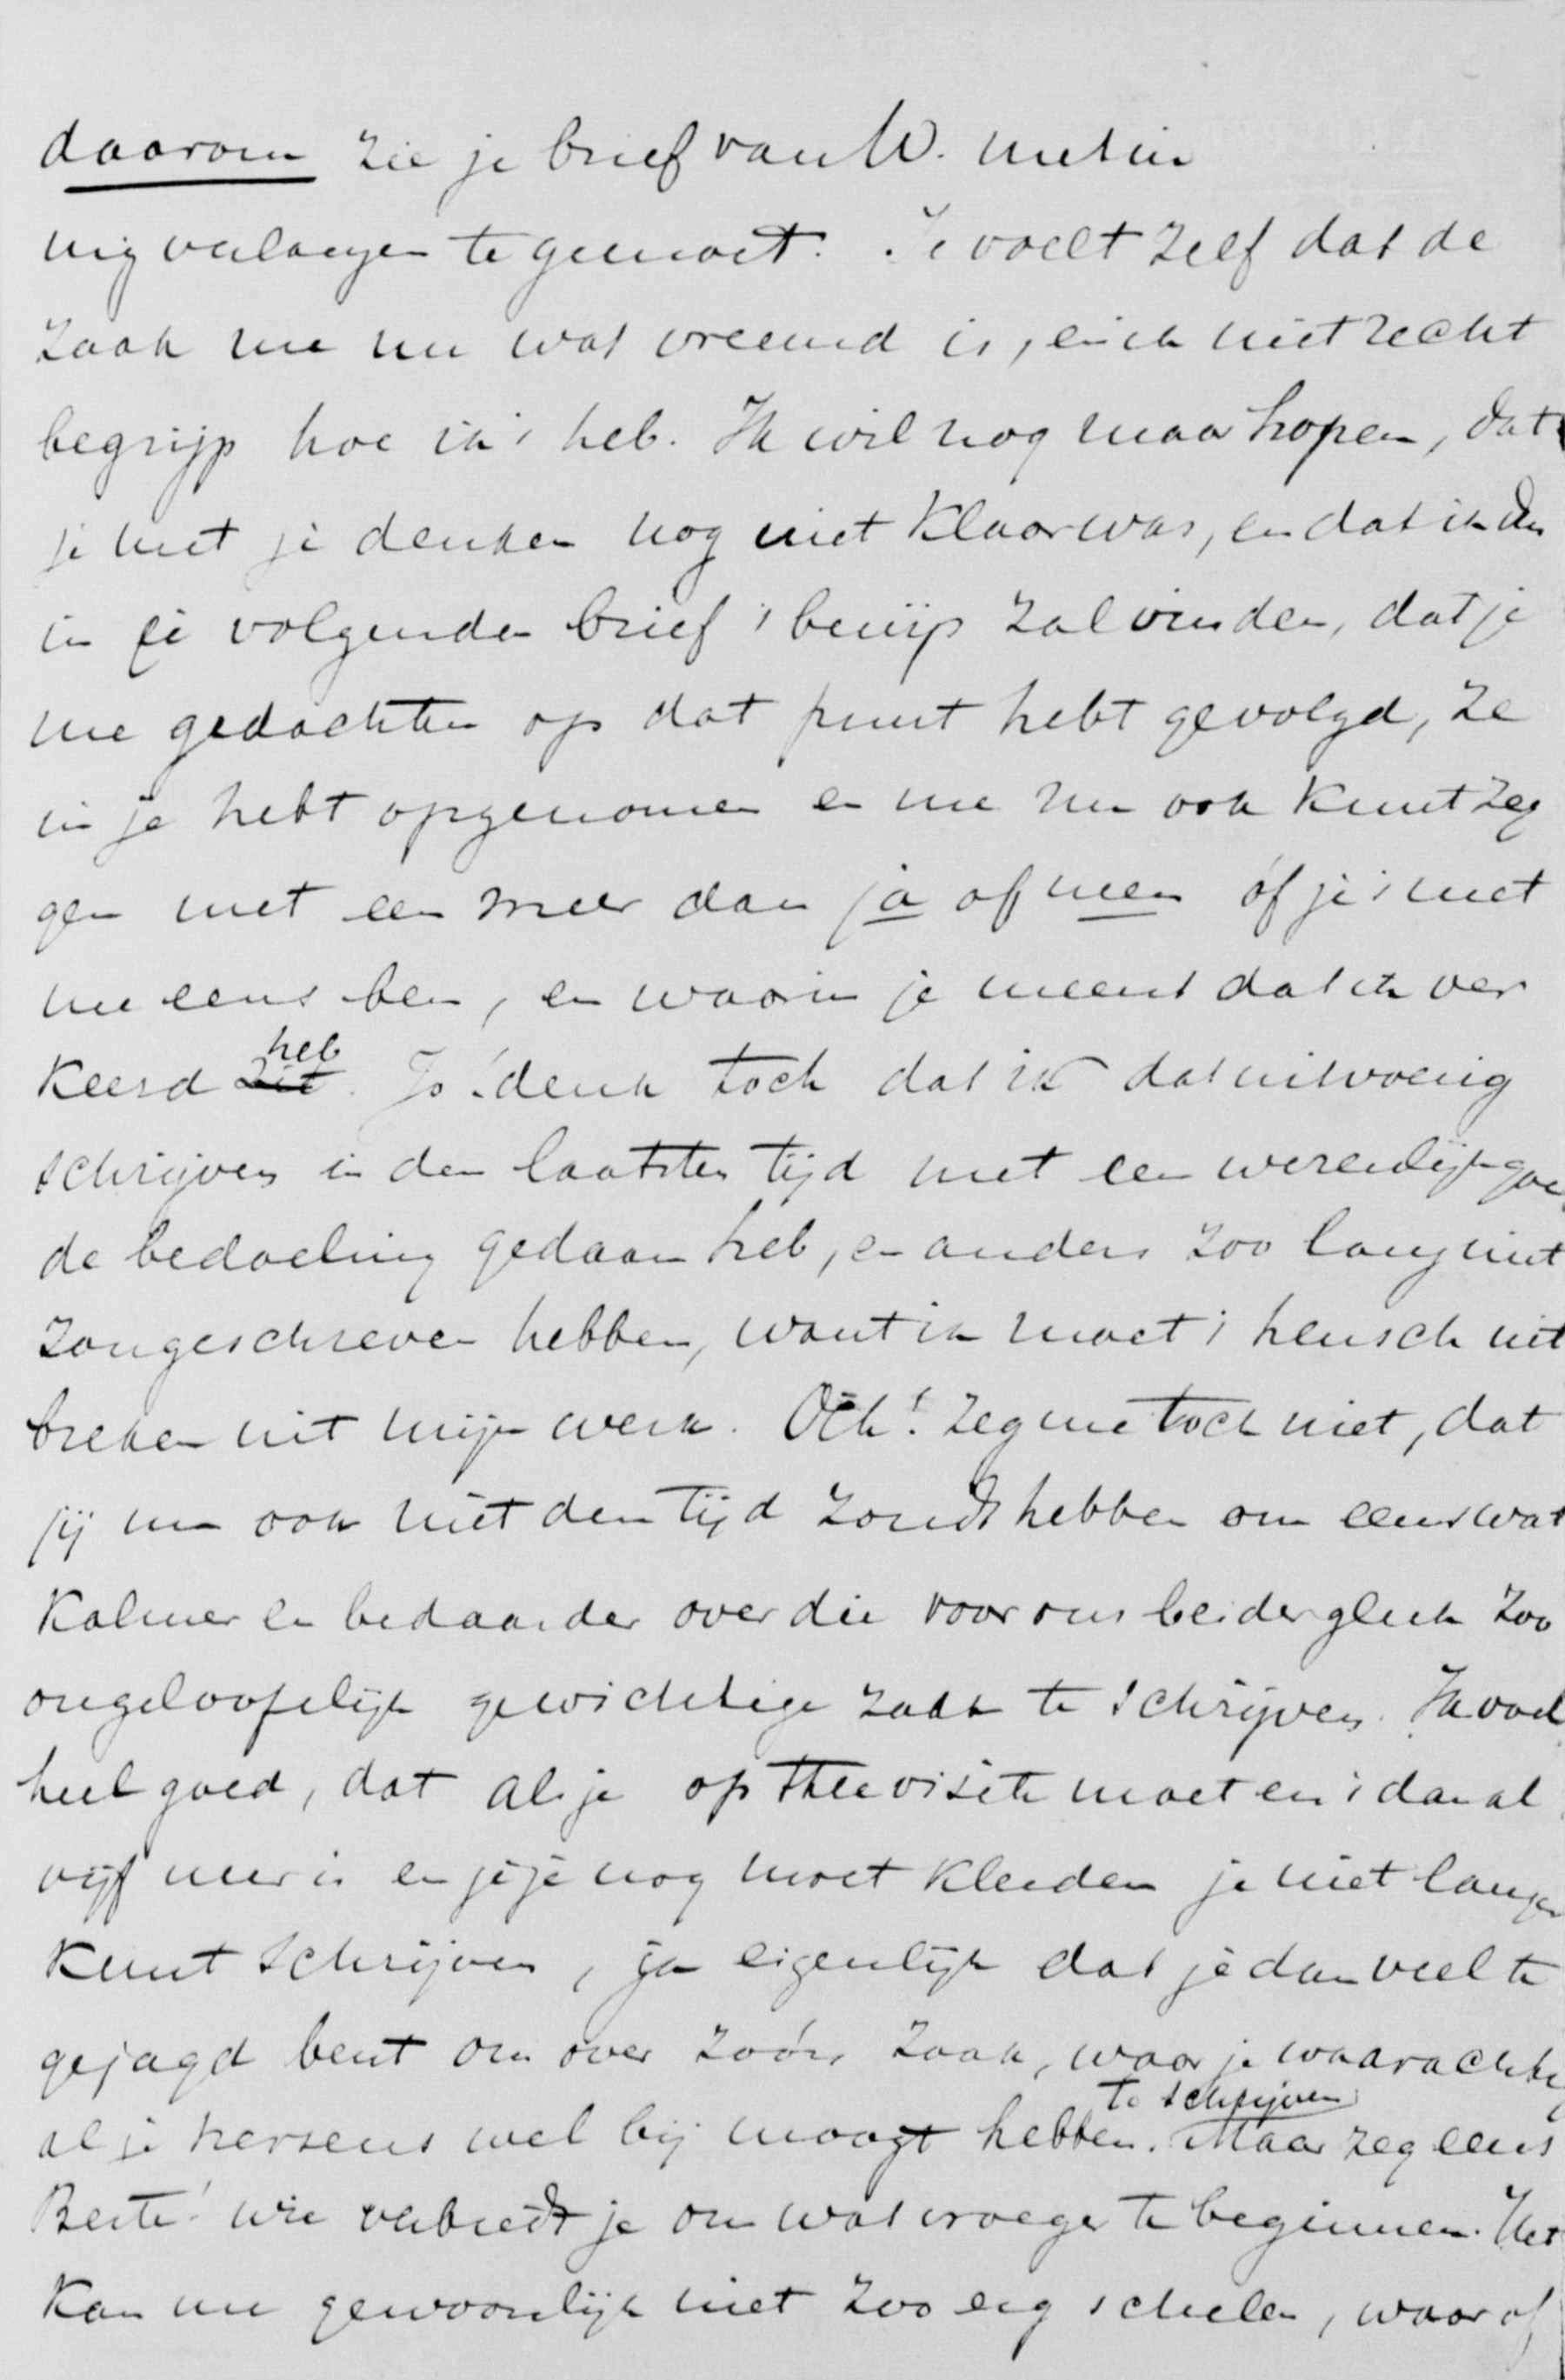 daarom zie je brief van W. met in
nig verlangen te gemoet. Je voelt zelf dat de
zaak me nu wat vreemd is, en ik niet recht
begrijp hoe ik 't heb. Ik wil nog maar hopen, dat
je met je denken nog niet klaar was, en dat ik dus
in je volgende brief 't bewijs zal vinden, dat je
me gedachten op dat punt hebt gevolgd, ze
in je hebt opgenomen en me nu ook kunt zeg
gen met een meer dan ja of neen óf je 't met
me eens ben, en waarin je meent dat ik ver
keerd heb. Jo! denk toch dat ik dat uitvoerig
schrijven in den laatsten tijd met een werkelijk goe
de bedoeling gedaan heb, en anders zoo lang niet
zou geschreven hebben, want ik moet 't heusch uit
breken uit mijn werk. Och! zeg me toch niet, dat
jij nu ook niet den tijd zoudt hebben om eens wat
kalmer en bedaarder over die voor ons beider geluk zoo
ongeloofelijk gewichtige zaak te schrijven. Ik voel
heel goed, dat als je op theevisite moet en 't dan al
vijf uur is en jij je nog moet kleeden je niet langer
kunt schrijven, ja eigenlijk dat je dan veel te
gejaagd bent om over zóó'n zaak, waar je waarachtig
al je hersens wel bij moogt hebben te schrijven. Maar zeg eens
Beste! wie verbiedt je om wat vroeger te beginnen. Het
kan me gewoonlijk niet zoo erg schelen, waar of